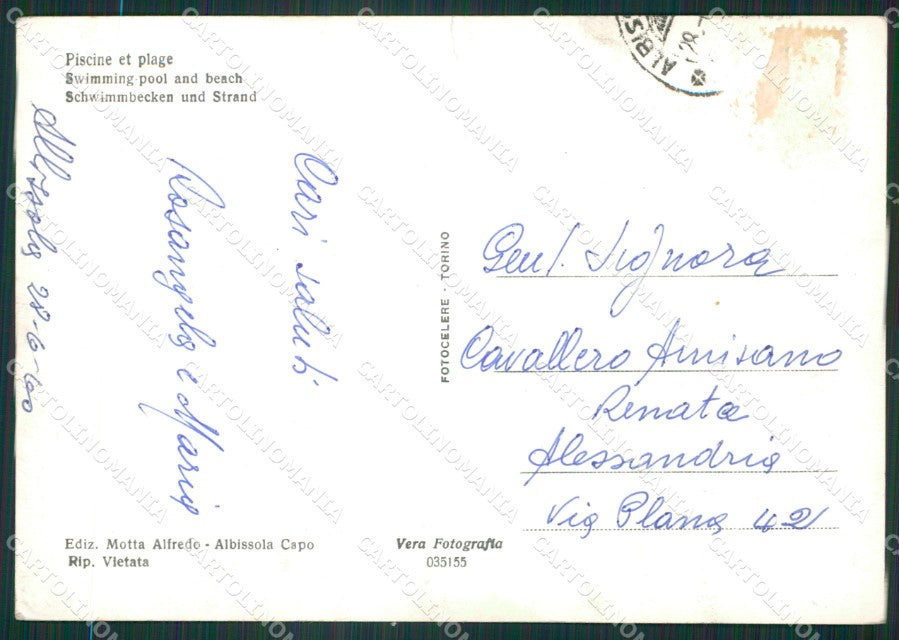 Piscine et plage
Swimming pool and beach
Schwimmbecken und Strand
Albisola 28-6-60
Cari saluti
Rosangela e Maria
FOTOCELERE - TORINO
ALBIS
28-
Gent. Signora
Cavallero Amisano
Renata
Alessandria
Via Plana 42
Ediz. Motta Alfredo - Albissola Capo
Rip. Vietata
Vera Fotografia
035155
CARTOLINOMANIA